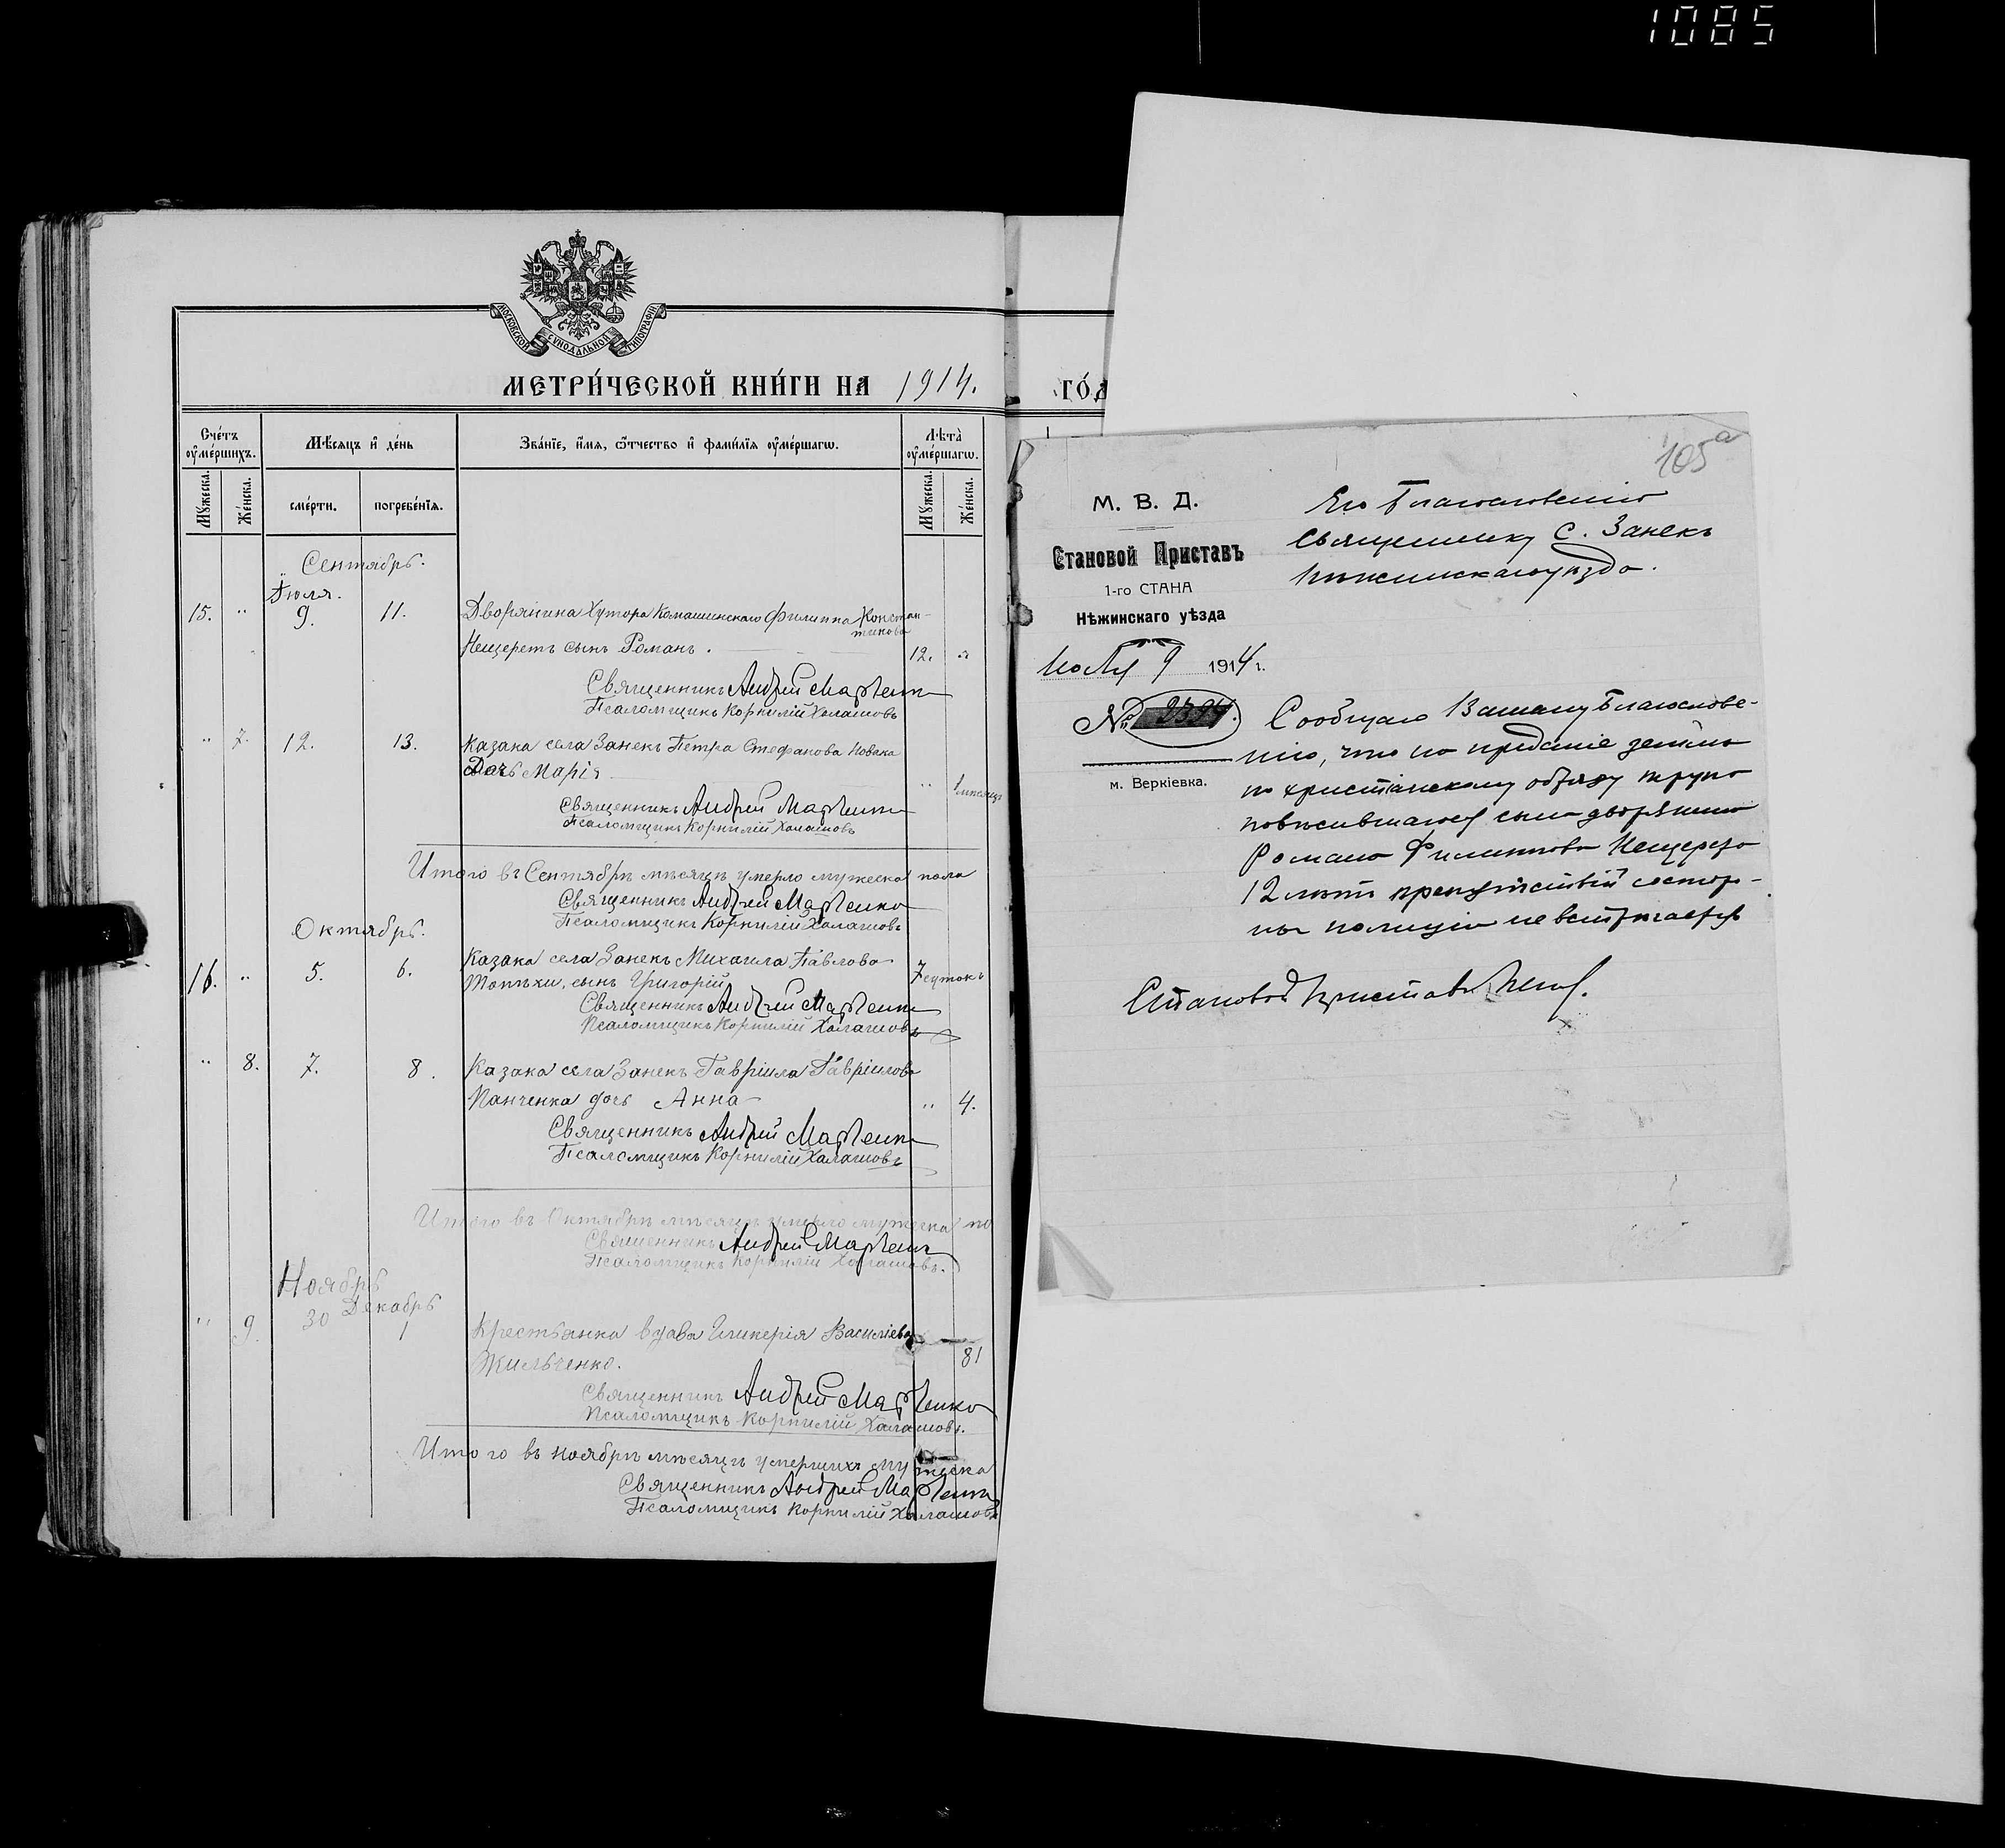 1085
МОСКОВСКОЙ СѴНОДАЛЬНОЙ ТИПОГРАФІИ
МЕТРИ́ЧЕСКОЙ КНИ́ГИ НА 1914. ГО́Д
Сче́тъ оу҆ме́ршихъ.
Мѣ́сяцъ и҆ де́нь
Зва́нїе, и҆́мя, ѻ҆́тчество и҆ фами́лїя оу҆ме́ршагѡ.
Лѣ́та оу҆ме́ршагѡ.
Мꙋ́жеска.
Же́нска.
сме́рти.
погребе́нїя.
Мꙋ́жеска.
Же́нска.
Сентябрь.
Іюля.
15. " 9. 11. Дворянина Хутора Комашинскаго Филиппа Констан-
тинова
Нещеретъ сынъ Романъ. 12. "
Священникъ Андрей Марченко
Псаломщикъ Корнилій Халашовъ
" 7. 12. 13. Казака села Занекъ Петра Стефанова Новака
дочь Марія " 1 мѣсяцъ
Священникъ Андрей Марченко
Псаломщикъ Корнилій Халашовъ
Итого въ Сентябрѣ мѣсяцѣ умерло мужеска пола
Священникъ Андрей Марченко
Псаломщикъ Корнилій Халашовъ
Октябрь.
16. " 5. 6. Казака села Занекъ Михаила Павлова 7 сутокъ
сынъ Григорій
Священникъ Андрей Марченко
Псаломщикъ Корнилій Халашовъ
" 8. 7. 8. Казака села Занекъ Гавріила Гавріилова
Панченка дочь Анна " 4.
Священникъ Андрей Марченко
Псаломщикъ Корнилій Халашовъ
Итого въ Октябрѣ мѣсяцѣ умерло мужеска по
Священникъ Андрей Марченко
Псаломщикъ Корнилій Халашовъ.
Ноябрь
Декабрь
" 9. 30 1 Крестьянка вдова Гликерія Василіева
Жильченко. 81
Священникъ Андрей Марченко
Псаломщикъ Корнилій Халашовъ.
Итого въ Ноябрѣ мѣсяцѣ умершихъ мужеска
Священникъ Андрей Марченко
Псаломщикъ Корнилій Халашовъ
105а
М. В. Д.
Становой Приставъ
1-го СТАНА
Нѣжинскаго уѣзда
9 1914 г.
№ 2394.
м. Веркіевка.
Его Благословенію
Священнику С. Занекъ
Нѣжинскаго уѣзда.
Сообщаю Вашему Благослове-
нію, что на преданіе землѣ
по христіанскому обряду трупа
повѣсившагося сына дворянина
Романа Филиппова Нещерета
12 лѣтъ препятствій со стор-
ны полиціи не встрѣчается
Становой Приставъ